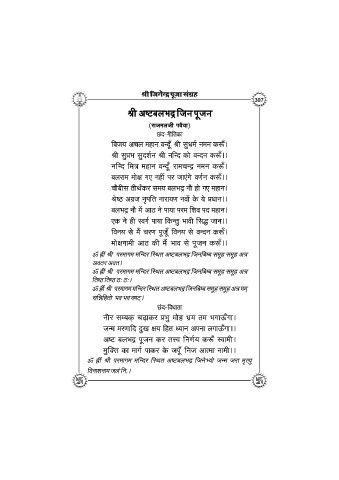 श्री जिनेन्द्र पूजा संग्रह
307
श्री अष्टबलभद्र जिन पूजन
(राजमलजी पवैया)
छंद-गीतिका
विजय अचल महान वन्दूँ श्री सुधर्म नमन करूँ।
श्री सुप्रभ सुदर्शन श्री नन्दि को वन्दन करूँ।।
नन्दि मित्र महान वन्दूँ रामचन्द्र नमन करूँ।
बलराम मोक्ष गए नहीं पर जाएंगे वर्णन करूँ।।
चौबीस तीर्थंकर समय बलभद्र नौ हो गए महान।
श्रेष्ठ अग्रज नृपति नारायण नवों के ये प्रधान।।
बलभद्र नौ में आठ ने पाया परम शिव पद महान।
एक ने ही स्वर्ग पाया किन्तु भावी सिद्ध जान।।
विनय से मैं चरण पूजूँ विनय से वन्दन करूँ।
मोक्षगामी आठ की मैं भाव से पूजन करूँ।।
ॐ ह्रीं श्री परमागम मन्दिर स्थित अष्टबलभद्र जिनबिम्ब समूह समूह अत्र
अवतर अवत।
ॐ ह्रीं श्री परमागम मन्दिर स्थित अष्टबलभद्र जिनबिम्ब समूह समूह अत्र
तिष्ठ तिष्ठ ठः ठः।
ॐ ह्रीं श्री परमागम मन्दिर स्थित अष्टबलभद्र जिनबिम्ब समूह समूह अत्र मम्
सन्निहितो भव भव वषट्।
छंद-विधाता
नीर सम्यक् चढ़ाकर प्रभु मोह भ्रम तम भगाऊँगा।
जन्म मरणादि दुख क्षय हित ध्यान अपना लगाऊँगा।।
अष्ट बलभद्र पूजन कर तत्त्व निर्णय करूँ स्वामी।
मुक्ति का मार्ग पाकर के जपूँ निज आत्मा नामी।।
ॐ ह्रीं श्री परमागम मन्दिर स्थित अष्टबलभद्र जिनेभ्यो जन्म जरा मृत्यु
विनाशनाय जलं नि.।